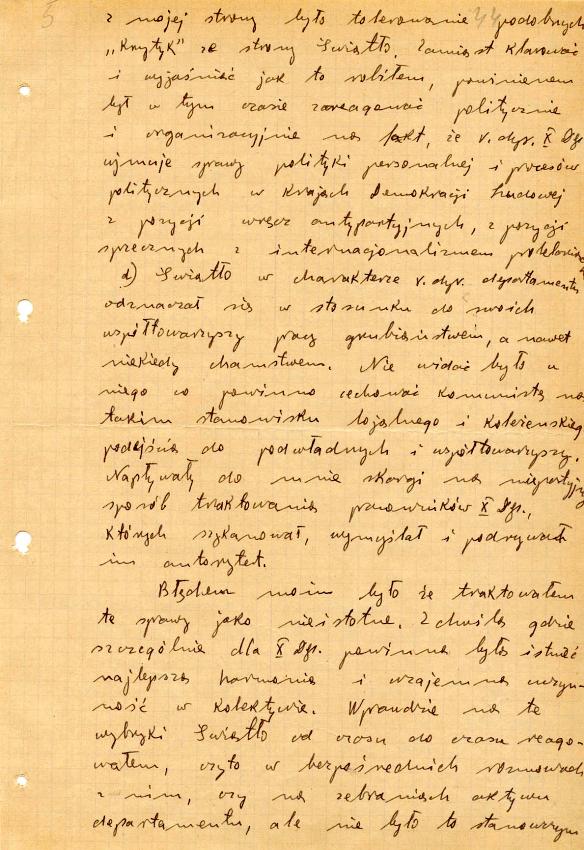 5 44
z mojej strony było tolerowanie podobnych
„Krytyk" ze strony Światło. Zamiast klarować
i wyjaśniać jak to robiłem, powinienem
był w tym czasie zareagować politycznie
i organizacyjnie na fakt, że v. dyr. X Dep.
ujmuje sprawy polityki personalnej i procesów
politycznych w Krajach Demokracji Ludowej
z pozycji wręcz antypartyjnych, z pozycji
sprzecznych z internacjonalizmem
d) Światło w charakterze v. dyr. departamentu
odznaczał się w stosunku do swoich
współtowarzyszy pracy grubiaństwem, a nawet
niekiedy chamstwem. Nie widać było u
niego co powinno cechować komunistę na
takim stanowisku lojalnego i koleżeńskiego
podejścia do podwładnych i współtowarzyszy.
Napływały do mnie skargi na niepartyjny
sposób traktowania pracowników X Dep.,
których szykanował, wymyślał i podrywał
im autorytet.
Błędem moim było że traktowałem
te sprawy jako nieistotne. Z chwilą gdzie
szczególnie dla X Dep. powinna była istnieć
najlepsza harmonia i wzajemna uczyn-
ność w kolektywie. Wprawdzie na te
wybryki Światło od czasu do czasu reago-
wałem, czyto w bezpośrednich rozmowach
z nim, czy na zebraniach aktywu
departamentu, ale nie było to stanowczym